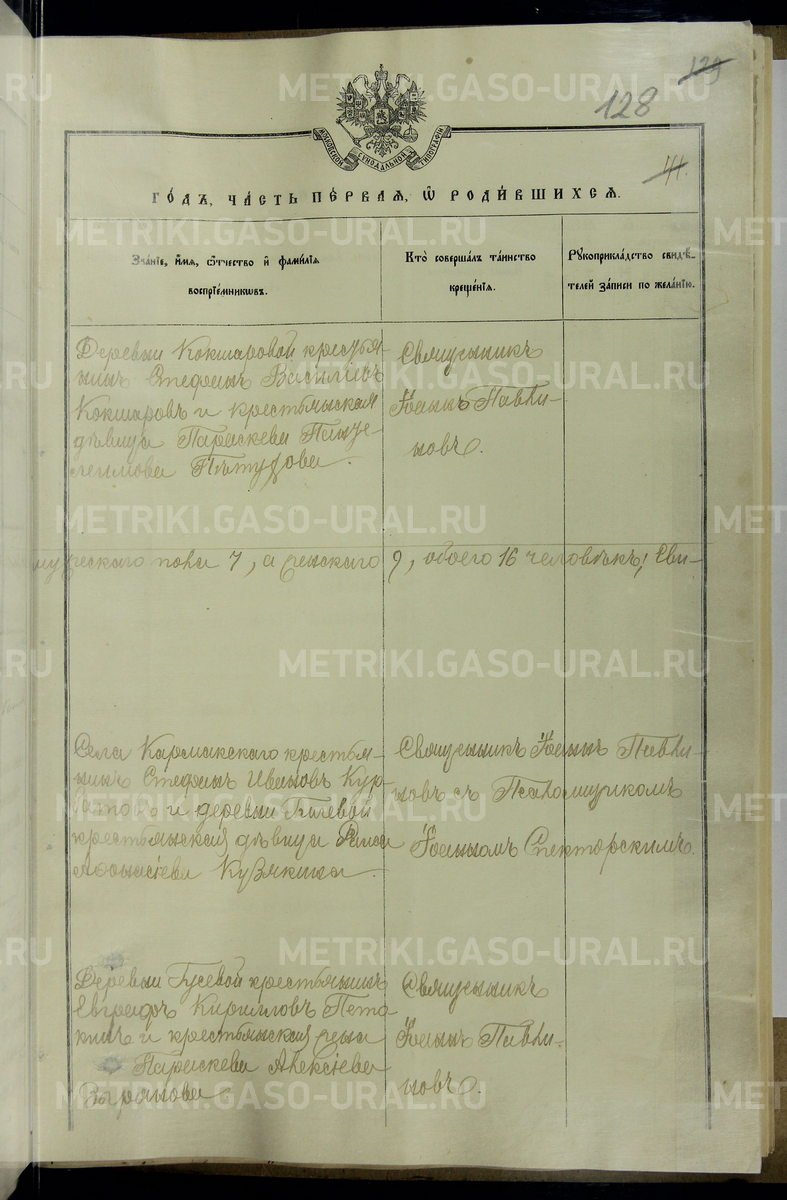 129
128
МОСКОВСКОЙ СѴНОДАЛЬНОЙ ТИПОГРАФІИ
44.
ГО́ДЪ, ЧА́СТЬ ПЕ́РВАЯ, Ѽ РОДИ́ВШИХСЯ.
Зва́ніе, и́мя, ѻ҆́тчество и҆ фами́лія
воспріе́мникѡвъ.
Кто̀ соверша́лъ та́инство
креще́нія.
Рꙋкоприкла́дство свидѣ́-
телей за́писи по жела́нію.
Деревни Кокшаровой крестья-
нинъ Стефанъ Васильевъ
Кокшаровъ и крестьянская
дѣвица Параскева Панте-
леимова Пѣтухова.
Священникъ
Іоаннъ Павли-
новъ.
мужескаго пола 7, а женскаго 9, обоего 16 человѣкъ; Сви-
Села Кармакскаго крестья-
нинъ Стефанъ Ивановъ Кур-
и деревни
крестьянская дѣвица
Аѳонасіева Кузякина.
Священникъ Іоаннъ Павли-
новъ съ Псаломщикомъ
Іоанномъ Спекторскимъ.
Деревни Гусевой крестьянинъ
Евграфъ Кирилловъ
и крестьянская жена
Параскева Алексіева
Зырянова
Священникъ
Іоаннъ Павли-
новъ.
METRIKI.GASO-URAL.RU